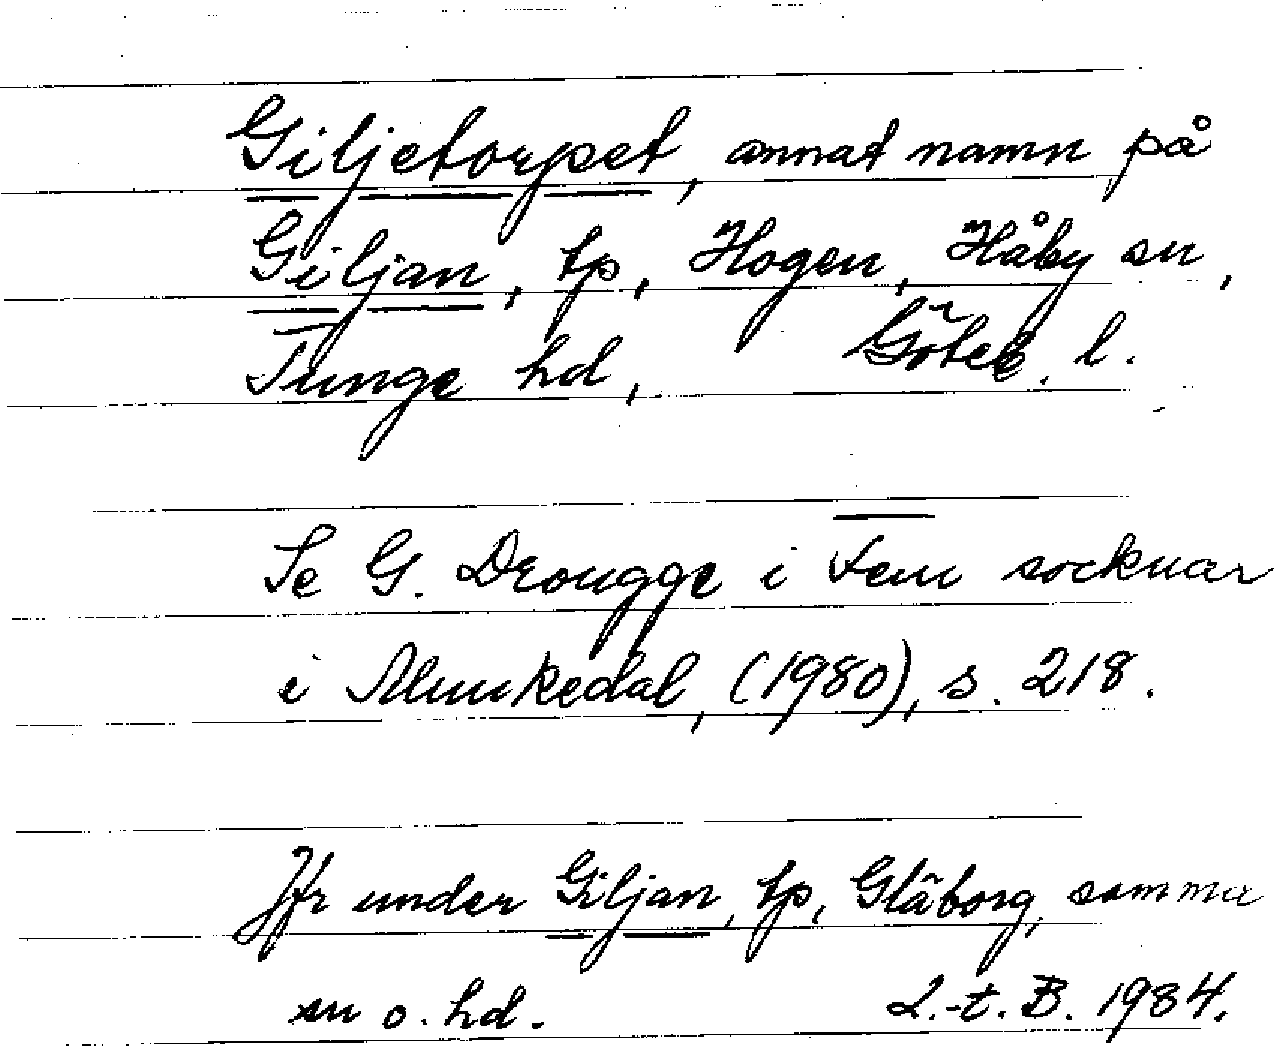 Giljetorpet, annat namn på
Giljan, tp, Hogen, Håby sn,
Tunge hd, Göteb. l.
Se G. Drougge i Fem socknar
i Munkedal, (1980), s. 218.
Jfr under Giljan, tp, Glåborg, samma
sn o. hd. L.-t. B. 1984.